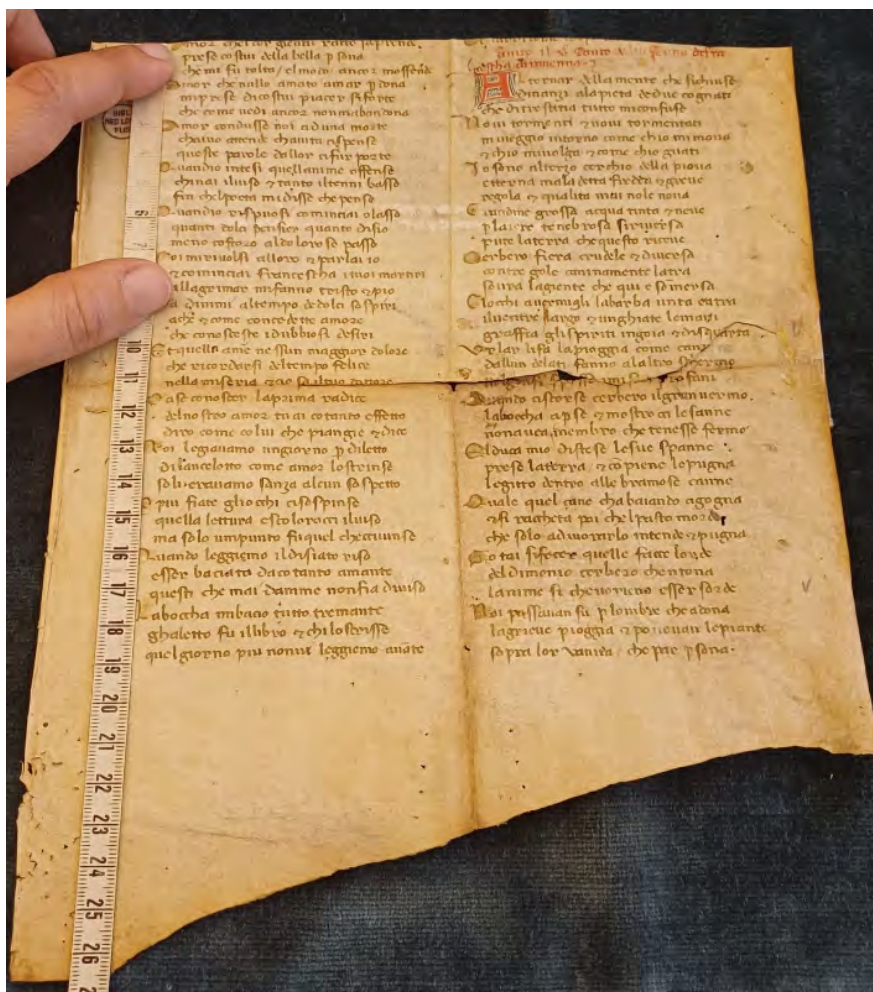 Amor chelcor gentil ratto saprende
prese costui della bella psona
che mi fu tolta / elmodo ancor moffende
Amor che nullo amato amar pdona
mi prese dicostui piacer si forte
che come uedi ancor non mabandona
Amor condusse noi aduna morte
chaino attende chauita cispense
queste parole dallor cifur porte
Quandio intesi quellanime offense
chinai iluiso ⁊ tanto iltenni basso
fin chelpoeta midisse chepense
Quandio rispuosi cominciai olasso
quanti dolci pensier quanto disio
meno costoro aldoloroso passo
Poi miriuolsi alloro ⁊ parlai io
⁊ cominciai francescha ituoi martiri
allagrimar mifanno tristo ⁊ pio
Ma dimmi altempo dedolci sospiri
ache ⁊ come concedette amore
che conosceste idubbiosi desiri
Et quella ame nessun maggior dolore
che ricordarsi deltempo felice
nella miseria ⁊ cio sa iltuo dottore
Ma se conoscer laprima radice
delnostro amor tu ai cotanto effetto
diro come colui che piangie ⁊ dice
Noi legiauamo ungiorno p diletto
dilancelotto come amor lostrinse
soli erauamo sanza alcun sospetto
P piu fiate gliocchi cisospinse
quella lettura escolorocci iluiso
ma solo umpunto fu quel checiuinse
Quando leggiemo ildisiato riso
esser baciato dacotanto amante
questi che mai damme nonfia diuiso
Laboccha mibacio tutto tremante
ghaleotto fu illibro ⁊ chi loscrisse
quelgiorno piu nonui leggiemo auāte
Al tornar della mente che sichiuse
dinanzi alapieta dedue cognati
che ditrestitia tutto miconfuse
Noui tormenti ⁊ noui tormentati
miueggio intorno come chio mimoua
⁊ chio miuolga ⁊ come chio guati
Io sono alterzo cerchio della pioua
etterna maladetta fredda ⁊ greue
regola ⁊ qualita mai nole noua
Grandine grossa acqua tinta ⁊ neue
p laere tenebroso siriuersa
pute laterra che questo riceue
Cerbero fiera crudele ⁊ diuersa
contre gole caninamente latra
soura lagiente che qui e somersa
Gliocchi a uermigli labarba unta eatra
iluentre largo ⁊ unghiate lemani
graffia glispiriti ingoia ⁊ disquarta
Vrlar lifa lapioggia come cani
dallun delati fanno alaltro schermo
Quando ciscorse cerbero ilgran uermo
labocche apse ⁊ mostrocci lesanne
nonauea membro che tenesse fermo
Elduca mio distese lesue spanne
prese laterra / ⁊ co piene lepugna
legitto dentro alle bramose canne
Quale quel cane chabaiando agogna
⁊ si racheta poi chelpasto morde
che solo adiuorarlo intende ⁊ pugna
Co tai sifecer quelle facce lorde
deldimonio cerbero chentrona
lanime si cheuorieno esser sorde
Noi passauan su p lombre cheadona
lagrieue pioggia ⁊ poneuan lepiante
sopra lor uanita / che par psona
6
7
10
11
12
13
14
15
16
17
18
19
20
21
22
23
24
25
26